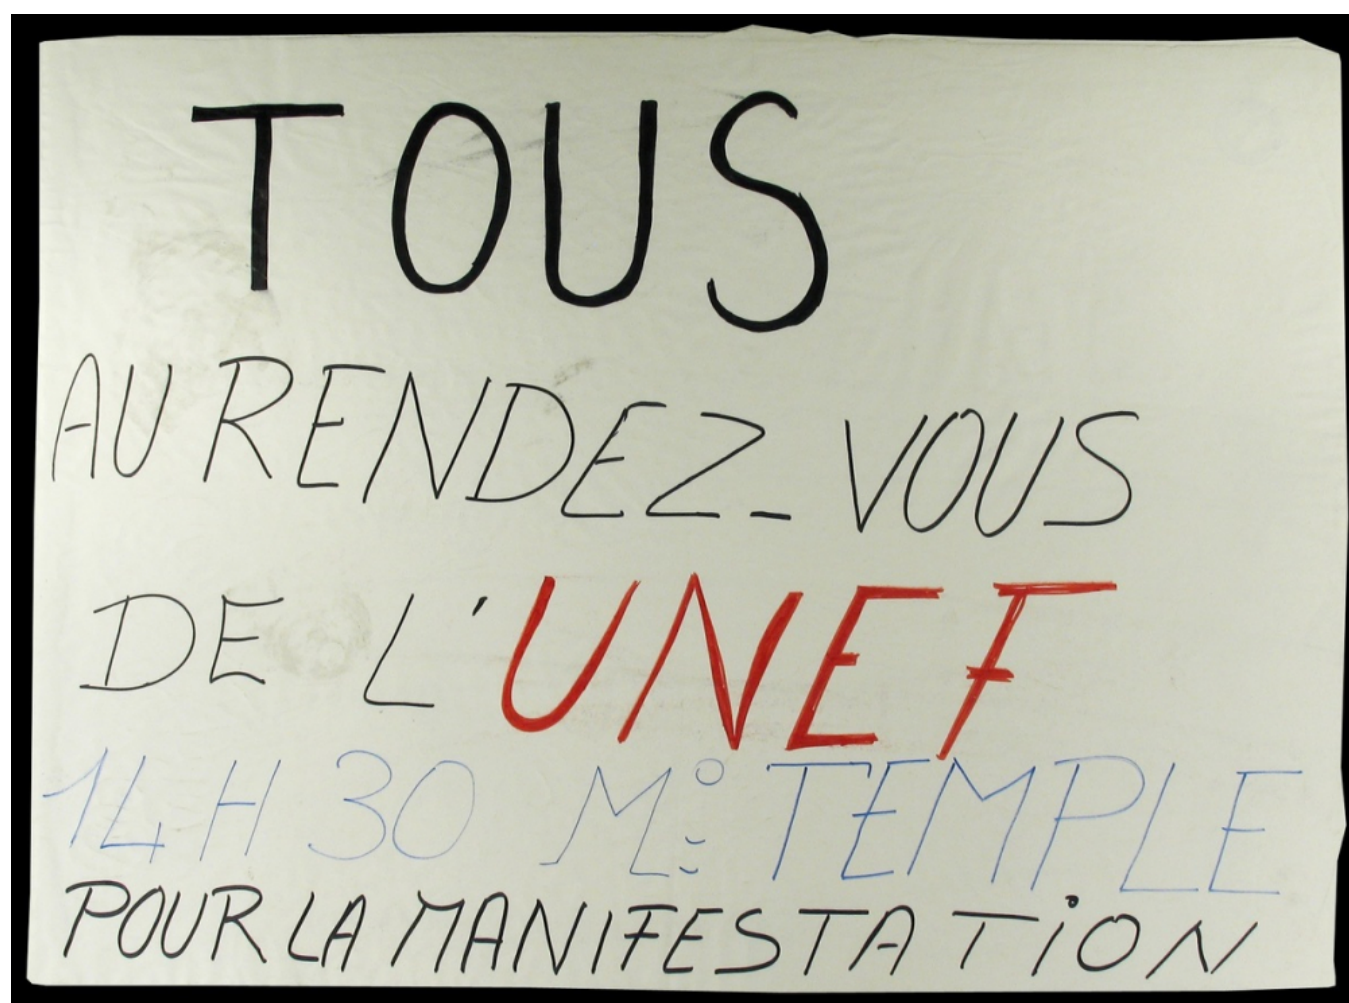 TOUS
AU RENDEZ-VOUS
DE L'UNEF
14H30 M° : TEMPLE
POUR LA MANIFESTATION